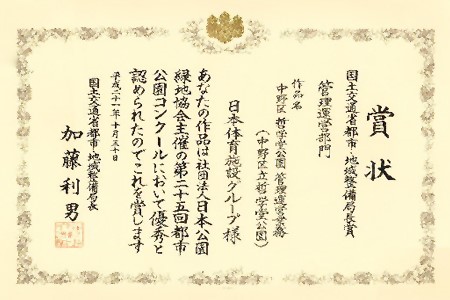 賞状
国土交通省都市・地域整備局長賞
管理運営部門
作品名
中野区 哲学堂公園 管理運営業務
（中野区立哲学堂公園）
日本体育施設グループ様
あなたの作品は社団法人日本公園
緑地協会主催の第二十五回都市
公園コンクールにおいて優秀と
認められたのでこれを賞します
平成二十一年十月三十日
国土交通省都市・地域整備局長
加藤利男